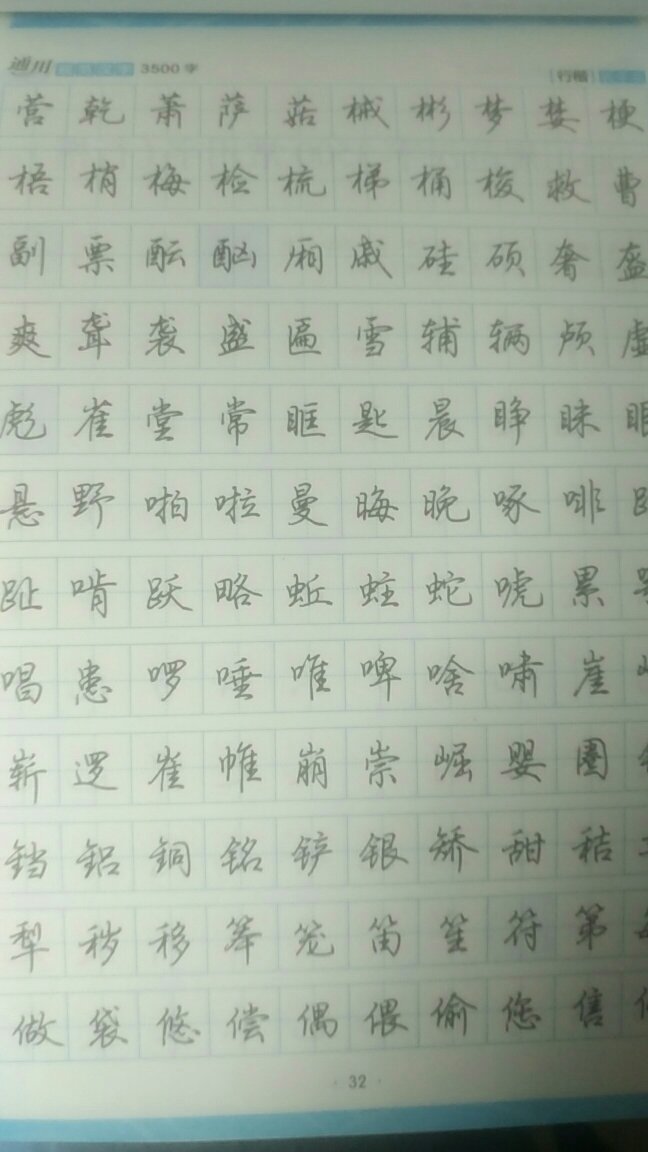 通用规范汉字 3500字 行楷
营乾萧萨菇械彬梦婪梗
梧梢梅检梳梯桶梭救曹
副票酝酗厢戚硅硕奢盔
爽聋袭盛匾雪辅辆颅虚
彪雀堂常眶匙晨睁眯眼
悬野啪啦曼晦晚啄啡距
趾啃跃略蚯蛀蛇唬累
唱患啰唾唯啤啥啸崖
崭逻崔帷崩崇崛婴圈
铛铝铜铭铲银矫甜秸
犁秽移笨笼笛笙符第
做袋悠偿偶偎偷您售
· 32 ·